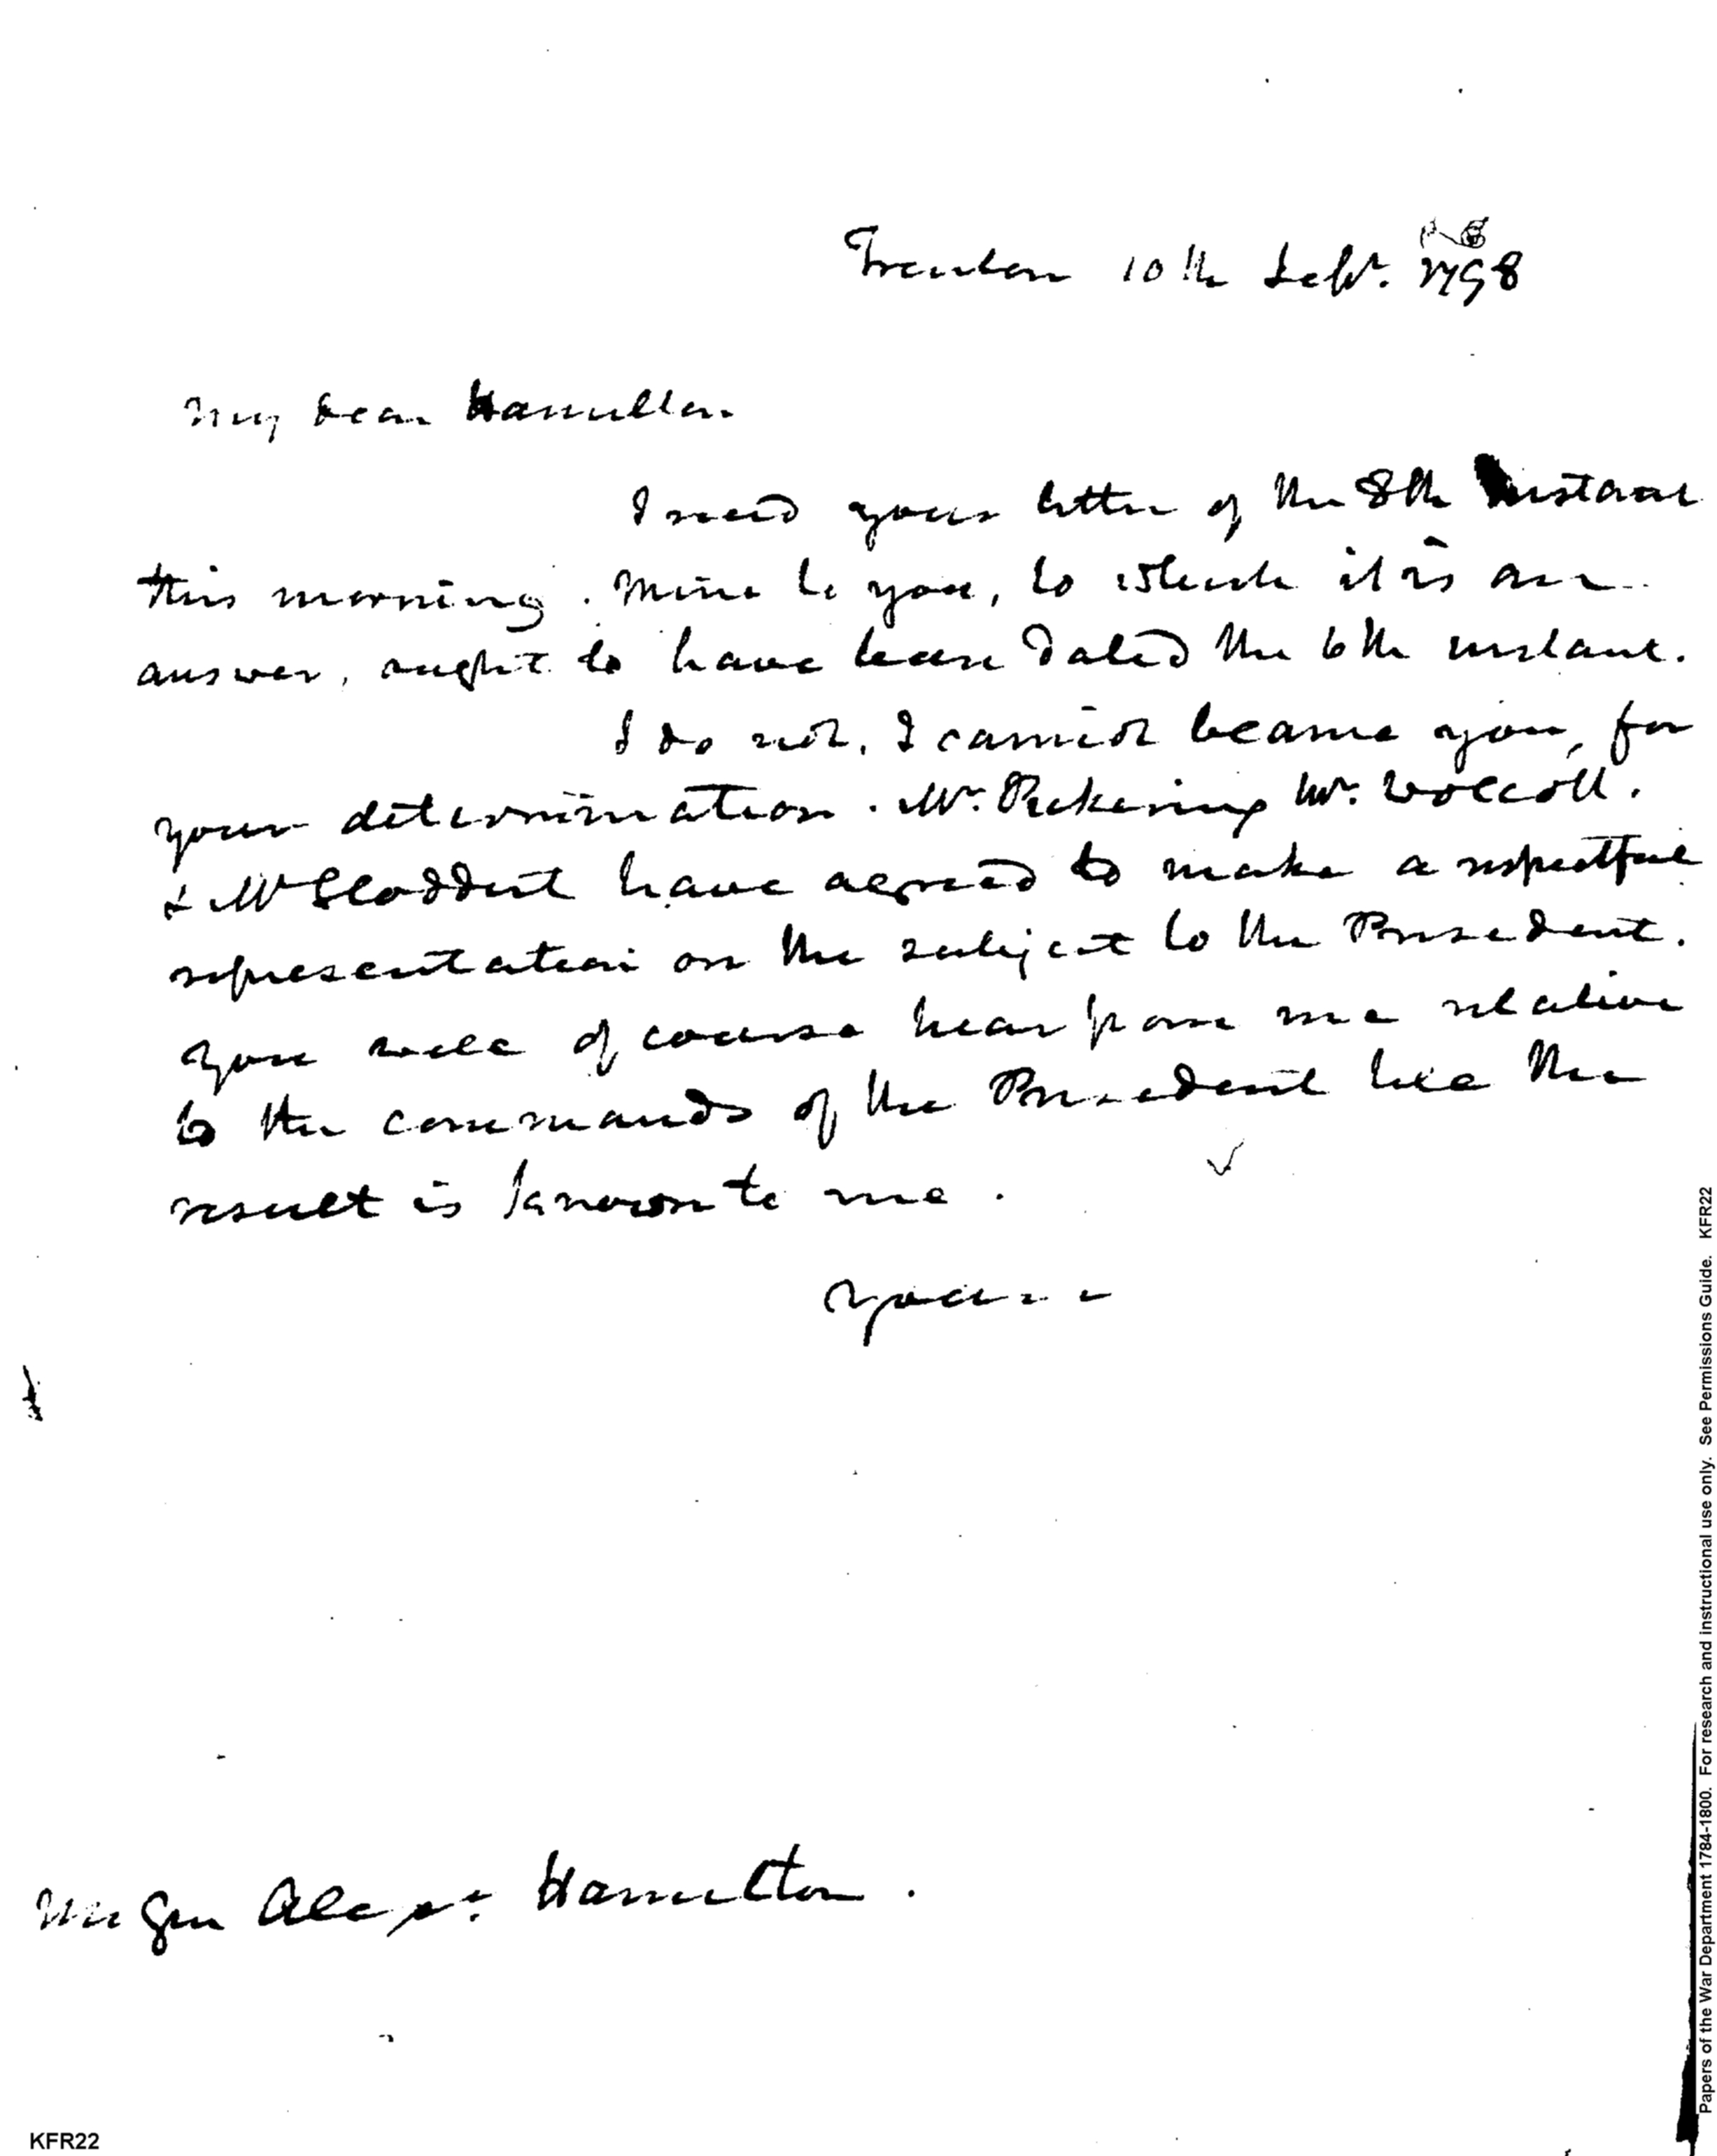 Trenton 10th Sept. 1798
My Dear Hamilton
I recd your letter of the 8th instant
this morning. Mine to you, to which it is an
answer, ought to have been dated the 6th instant.
I do not, I cannot blame you, for
your determination. Mr. Pickering Mr. Wolcott.
& Mr Stoddert have agreed to make a respectful
representation on the subject to the President.
you will of course hear from me relative
to the commands of the President till the
result is known to me.
Yours
Gen Alexr. Hamilton.
KFR22
Papers of the War Department 1784-1800. For research and instructional use only. See Permissions Guide. KFR22